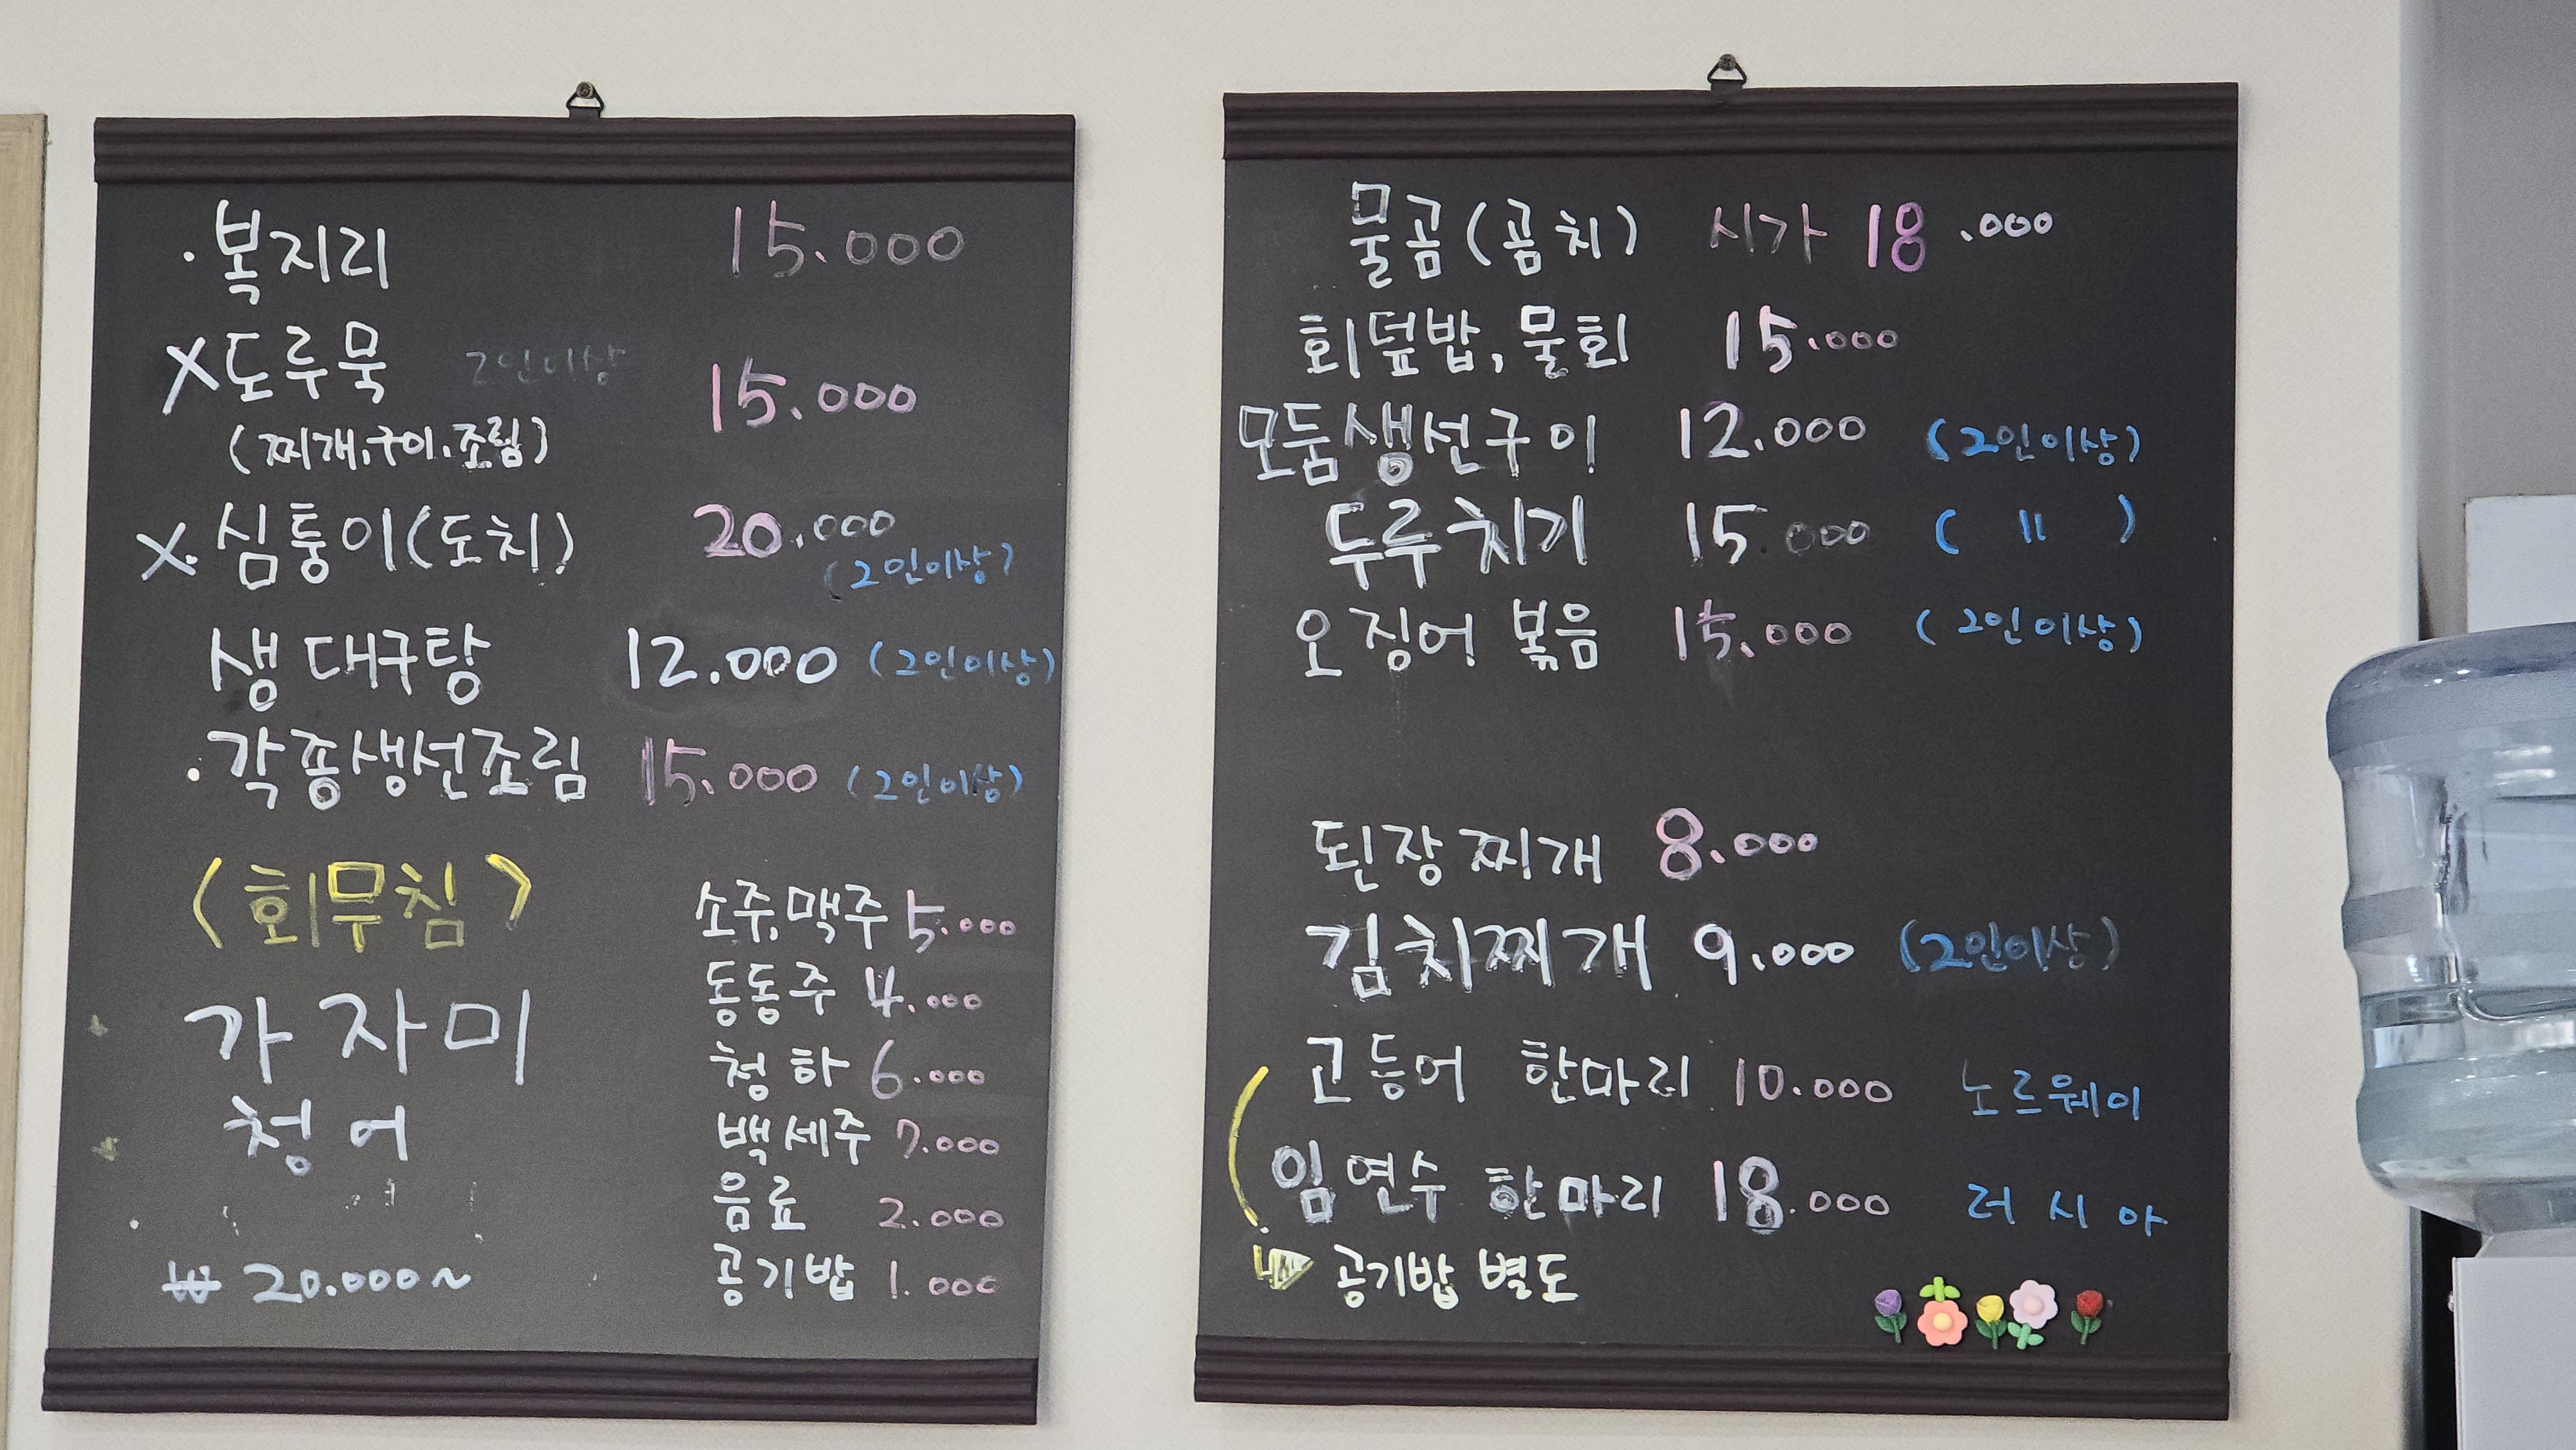 · 복지리 15.000
X 도루묵 2인이상 15.000
(찌개.구이.조림)
X. 심퉁이(도치) 20.000
(2인이상)
생대구탕 12.000 (2인이상)
· 각종생선조림 15.000 (2인이상)
<회무침>
가자미
청어
₩ 20.000~
소주,맥주 5.000
동동주 4.000
청하 6.000
백세주 7.000
음료 2.000
공기밥 1.000
물곰(곰치) 시가 18.000
회덮밥,물회 15.000
모둠생선구이 12.000 (2인이상)
두루치기 15.000 ( 〃 )
오징어 볶음 15.000 (2인이상)
된장찌개 8.000
김치찌개 9.000 (2인이상)
고등어 한마리 10.000 노르웨이
임연수 한마리 18.000 러시아
공기밥 별도